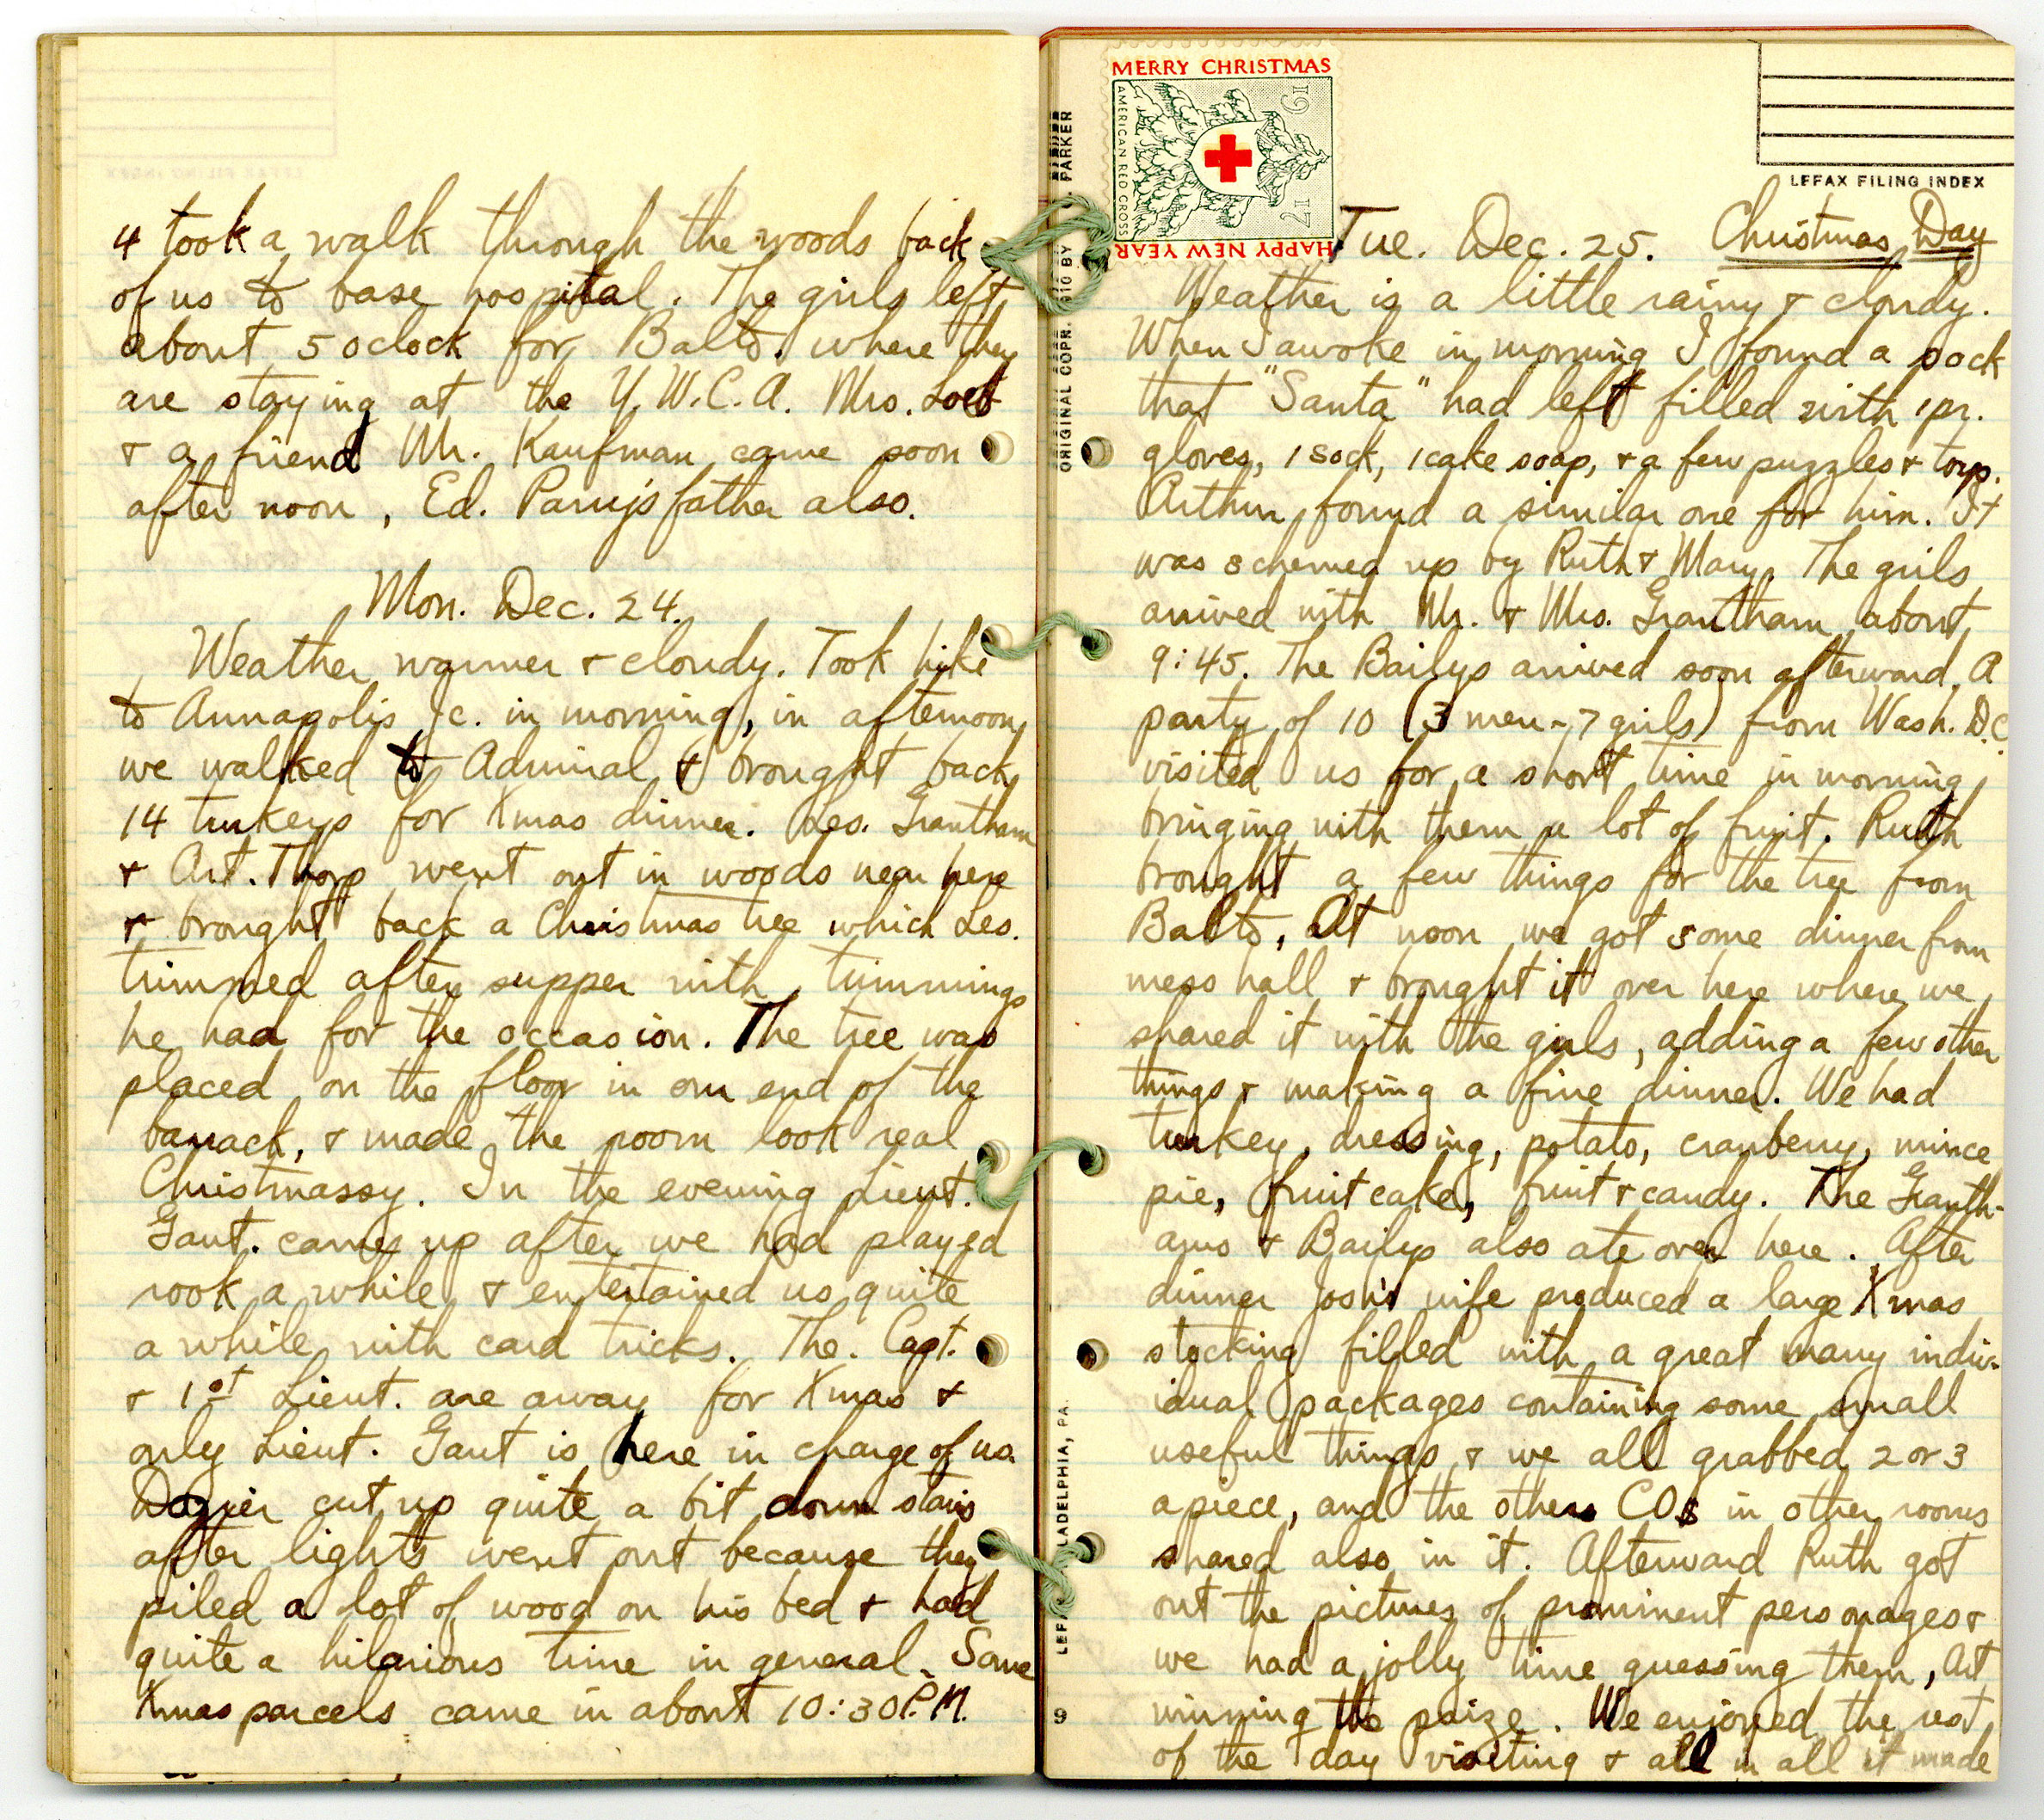 & took a walk through the woods back
of us to base hospital. The girls left
about 5 oclock for Balto. where they
are staying at the Y.W.C.A. Mrs. Loeb
& a friend Mr. Kaufman came soon
after noon, Ed. Parry's father also.
Mon. Dec. 24.
Weather warmer & cloudy. Took hike
to Annapolis Jc. in morning, in afternoon
we walked to Admiral & brought back
14 turkeys for Xmas dinner. Les. Grantham
& Art. Thorp went out in woods near here
& brought back a Christmas tree which Les.
trimmed after supper with trimmings
he had for the occasion. The tree was
placed on the floor in our end of the
barrack, & made the room look real
Christmassy. In the evening Lieut.
Gaut. came up after we had played
rook a while & entertained us quite
a while with card tricks. The. Capt.
& 1st Lieut. are away for Xmas &
only Lieut. Gaut is here in charge of us.
Dozier cut up quite a bit down stairs
after lights went out because they
piled a lot of wood on his bed & had
quite a hilarious time in general. Some
Xmas parcels came in about 10:30 P.M.
MERRY CHRISTMAS
AMERICAN RED CROSS
1917
HAPPY NEW YEAR
LEFAX FILING INDEX
ORIGINAL COPR. 1910 BY J. PARKER
Tue. Dec. 25. Christmas Day
Weather is a little rainy & cloudy.
When I awoke in morning I found a sock
that "Santa" had left filled with 1 pr.
gloves, 1 sock, 1 cake soap, & a few puzzles & toys.
Arthur found a similar one for him. It
was schemed up by Ruth & Mary. The girls
arrived with Mr. & Mrs. Grantham about
9:45. The Bailys arrived soon afterward. A
party of 10 (3 men - 7 girls) from Wash. D.C.
visited us for a short time in morning
bringing with them a lot of fruit. Ruth
brought a few things for the tree from
Balto. At noon we got some dinner from
mess hall & brought it over here where we
shared it with the girls, adding a few other
things & making a fine dinner. We had
turkey, dressing, potato, cranberry, mince
pie, fruit cake, fruit & candy. The Granth-
ams & Bailys also ate over here. After
dinner Josh's wife produced a large Xmas
stocking filled with a great many indiv-
idual packages containing some small
useful things & we all grabbed 2 or 3
apiece, and the other COs in other rooms
shared also in it. Afterward Ruth got
out the pictures of prominent personages &
we had a jolly time guessing them, Art
winning the prize. We enjoyed the rest
of the day visiting & all in all it made
LADELPHIA, PA.
9